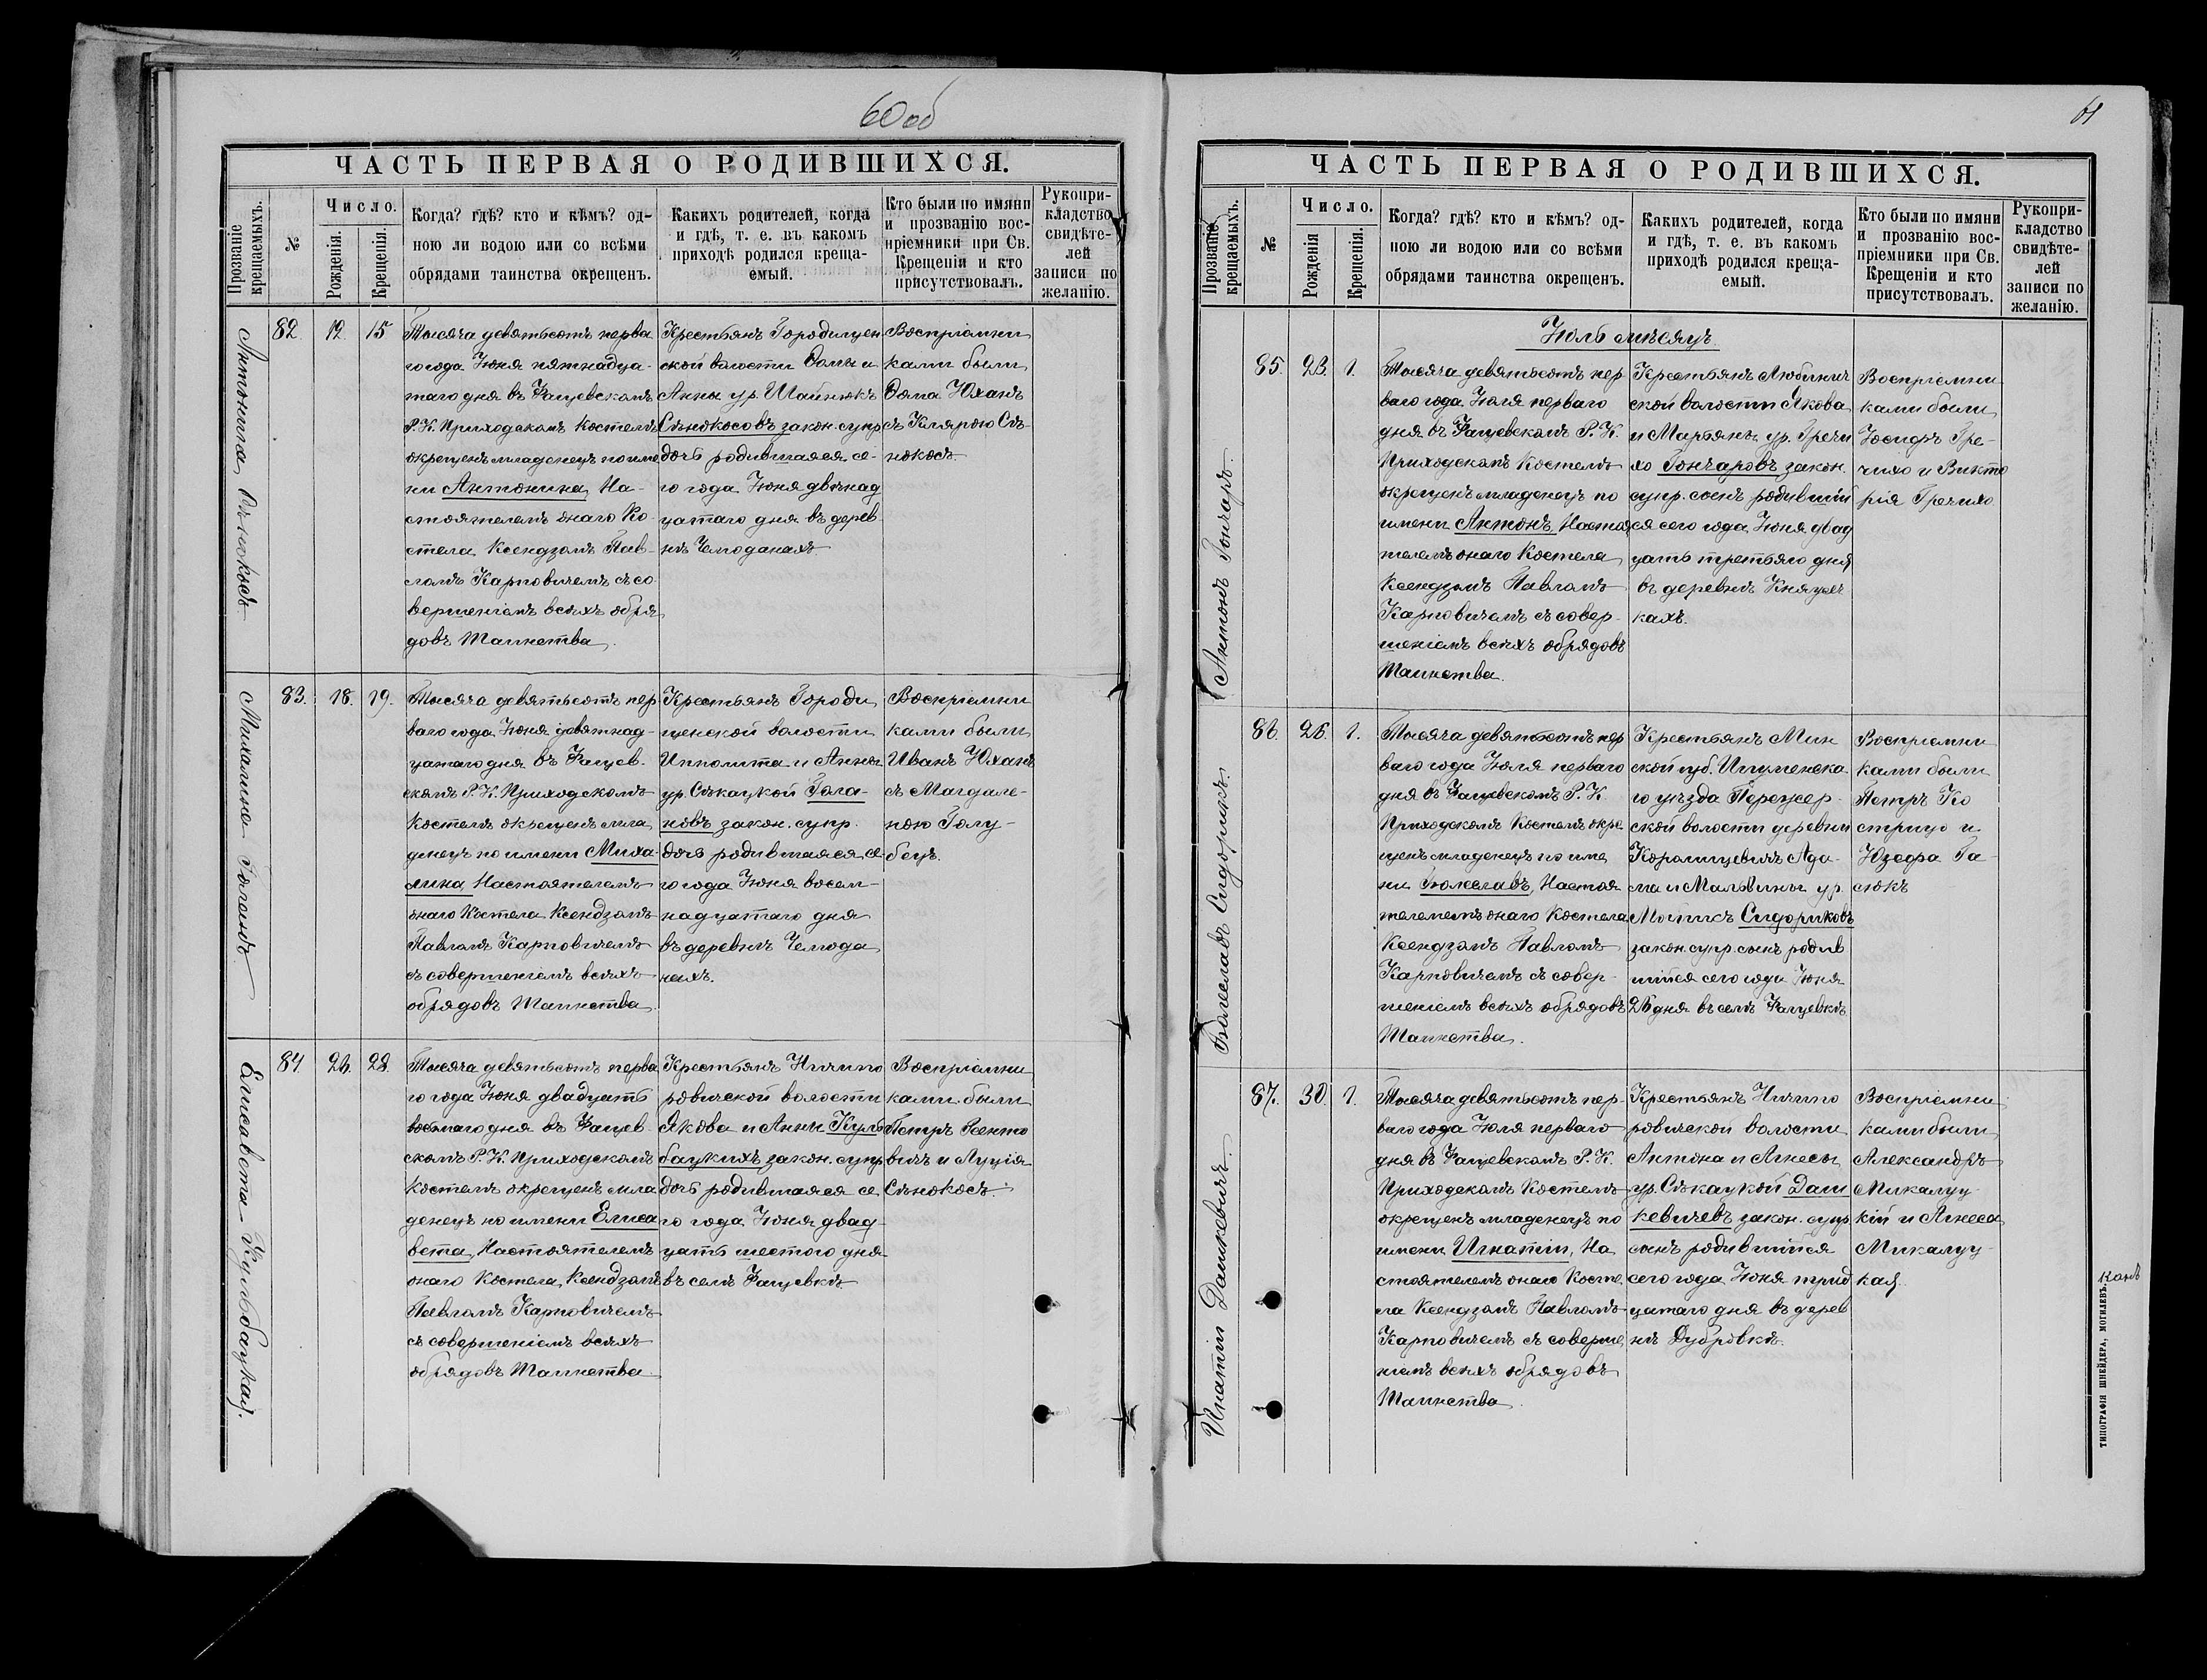 60 об
ЧАСТЬ ПЕРВАЯ О РОДИВШИХСЯ.
Прозваніе крещаемыхъ.
№
Число.
Рожденія.
Крещенія.
Когда? гдѣ? кто и кѣмъ? од-
ною ли водою или со всѣми
обрядами таинства окрещенъ.
Какихъ родителей, когда
и гдѣ, т. е. въ какомъ
приходѣ родился креща-
емый.
Кто были по имяни
и прозванію вос-
пріемники при Св.
Крещеніи и кто
присутствовалъ.
Рукопри-
кладство
свидѣте-
лей
записи по
желанію.
Антонина Сѣнокосъ
82
12
15
Тысяча девятьсотъ перва
го года Іюня пятнадца-
таго дня въ Фащевскомъ
Р. К. Приходскомъ Костелѣ
окрещенъ младенецъ по име
ни Антонина, На-
стоятелемъ онаго Ко
стела Ксендзомъ Пав-
ломъ Карповичемъ съ со
вершеніемъ всѣхъ обря
довъ Таинства.
Крестьянъ Городищен
ской волости Ѳомы и
Анны ур. Шайнюкъ
Сѣнокосовъ закон. супр
дочь родившаяся се-
го года Іюня двѣнад
цатаго дня въ дерев
нѣ Чемоданахъ
Воспріемни
ками были
Ѳома Юханъ
съ Клярою Сѣ-
нокосъ.
Михалина Голанъ
83.
18.
19.
Тысяча девятьсотъ пер
ваго года Іюня девятнад-
цатаго дня въ Фащев-
скомъ Р. К. Приходскомъ
Костелѣ окрещенъ мла
денецъ по имени Миха-
лина Настоятелемъ
онаго Костела Ксендзомъ
Павломъ Карповичемъ
съ совершеніемъ всѣхъ
обрядовъ Таинства.
Крестьянъ Городи
щенской волости
Ипполита и Анны
ур. Сѣкацкой Гола-
новъ закон. супр.
дочь родившаяся се-
го года Іюня восем-
надцатаго дня
въ деревнѣ Чемода
нахъ.
Воспріемни
ками были
Иванъ Юханъ
съ Магдале-
ною Голу-
бецъ.
Елисавета Кульбацкая.
84
26.
28.
Тысяча девятьсотъ перва
го года Іюня двадцать
восьмаго дня въ Фащев-
скомъ Р. К. Приходскомъ
Костелѣ окрещенъ мла
денецъ по имени Елиса
вета, Настоятелемъ
онаго Костела Ксендзомъ
Павломъ Карповичемъ
съ совершеніемъ всѣхъ
обрядовъ Таинства.
Крестьянъ Ничипо
ровичской волости
Якова и Анны Куль
бацкихъ закон. супр.
дочь родившаяся се
го года Іюня двад-
цать шестого дня
въ селѣ Фащевкѣ
Воспріемни
ками были
Петръ
вичъ и Луція
Сѣнокосъ.
61
ЧАСТЬ ПЕРВАЯ О РОДИВШИХСЯ.
Прозваніе крещаемыхъ.
№
Число.
Рожденія
Крещенія.
Когда? гдѣ? кто и кѣмъ? од-
ною ли водою или со всѣми
обрядами таинства окрещенъ.
Какихъ родителей, когда
и гдѣ, т. е. въ какомъ
приходѣ родился креща-
емый.
Кто были по имяни
и прозванію вос-
пріемники при Св.
Крещеніи и кто
присутствовалъ.
Рукопри-
кладство
свидѣте-
лей
записи по
желанію.
Іюль мѣсяцъ.
Антонъ Гончаръ.
85.
23.
1.
Тысяча девятьсотъ пер
ваго года Іюля перваго
дня въ Фащевскомъ Р. К.
Приходскомъ Костелѣ
окрещенъ младенецъ по
имени Антонъ, Настоя
телемъ онаго Костела
Ксендзомъ Павломъ
Карповичемъ съ совер-
шеніемъ всѣхъ обрядовъ
Таинства.
Крестьянъ Любинич
ской волости Якова
и Марьяны ур. Гречи
хо Гончаровъ закон.
супр. сынъ родивший
ся сего года Іюня двад
цать третьяго дня
въ деревнѣ Княжич
кахъ.
Воспріемни
ками были
Іосифъ Гре-
чихо и Викто
рія Гречихо
Болеславъ Сидорикъ.
86.
26.
1.
Тысяча девятьсотъ пер
ваго года Іюля перваго
дня въ Фащевскомъ Р. К.
Приходскомъ Костелѣ окре
щенъ младенецъ по име
ни Болеславъ, Настоя
телемъ онаго Костела
Ксендзомъ Павломъ
Карповичемъ съ совер-
шеніемъ всѣхъ обрядовъ
Таинства.
Крестьянъ Мин
ской губ. Игуменска
го уѣзда Пережер-
ской волости деревни
Королищевичъ Ада-
ма и Мальвины ур.
Сидориковъ
закон. супр. сынъ родив
шійся сего года Іюня
26 дня въ селѣ Фащевкѣ
Воспріемни
ками были
Петръ Ко
стрицо и
Юзефа Га-
сюкъ
Игнатій Дашкевичъ.
87.
30.
1.
Тысяча девятьсотъ пер-
ваго года Іюля перваго
дня въ Фащевскомъ Р. К.
Приходскомъ Костелѣ
окрещенъ младенецъ по
имени Игнатій, На
стоятелемъ онаго Косте
ла Ксендзомъ Павломъ
Карповичемъ съ соверше
ніемъ всѣхъ обрядовъ
Таинства.
Крестьянъ Ничипо
ровичской волости
Антона и Агнесы
ур. Сѣкацкой Даш
кевичевъ закон. супр
сынъ родившійся
сего года Іюня трид
цатаго дня въ дерев
нѣ Дубровкѣ.
Воспріемни
ками были
Александръ
Микалуц-
кій и Агнеса
Микалуц-
кая.
ТИПОГРАФІЯ ШНЕЙДЕРА, МОГИЛЕВЪ.